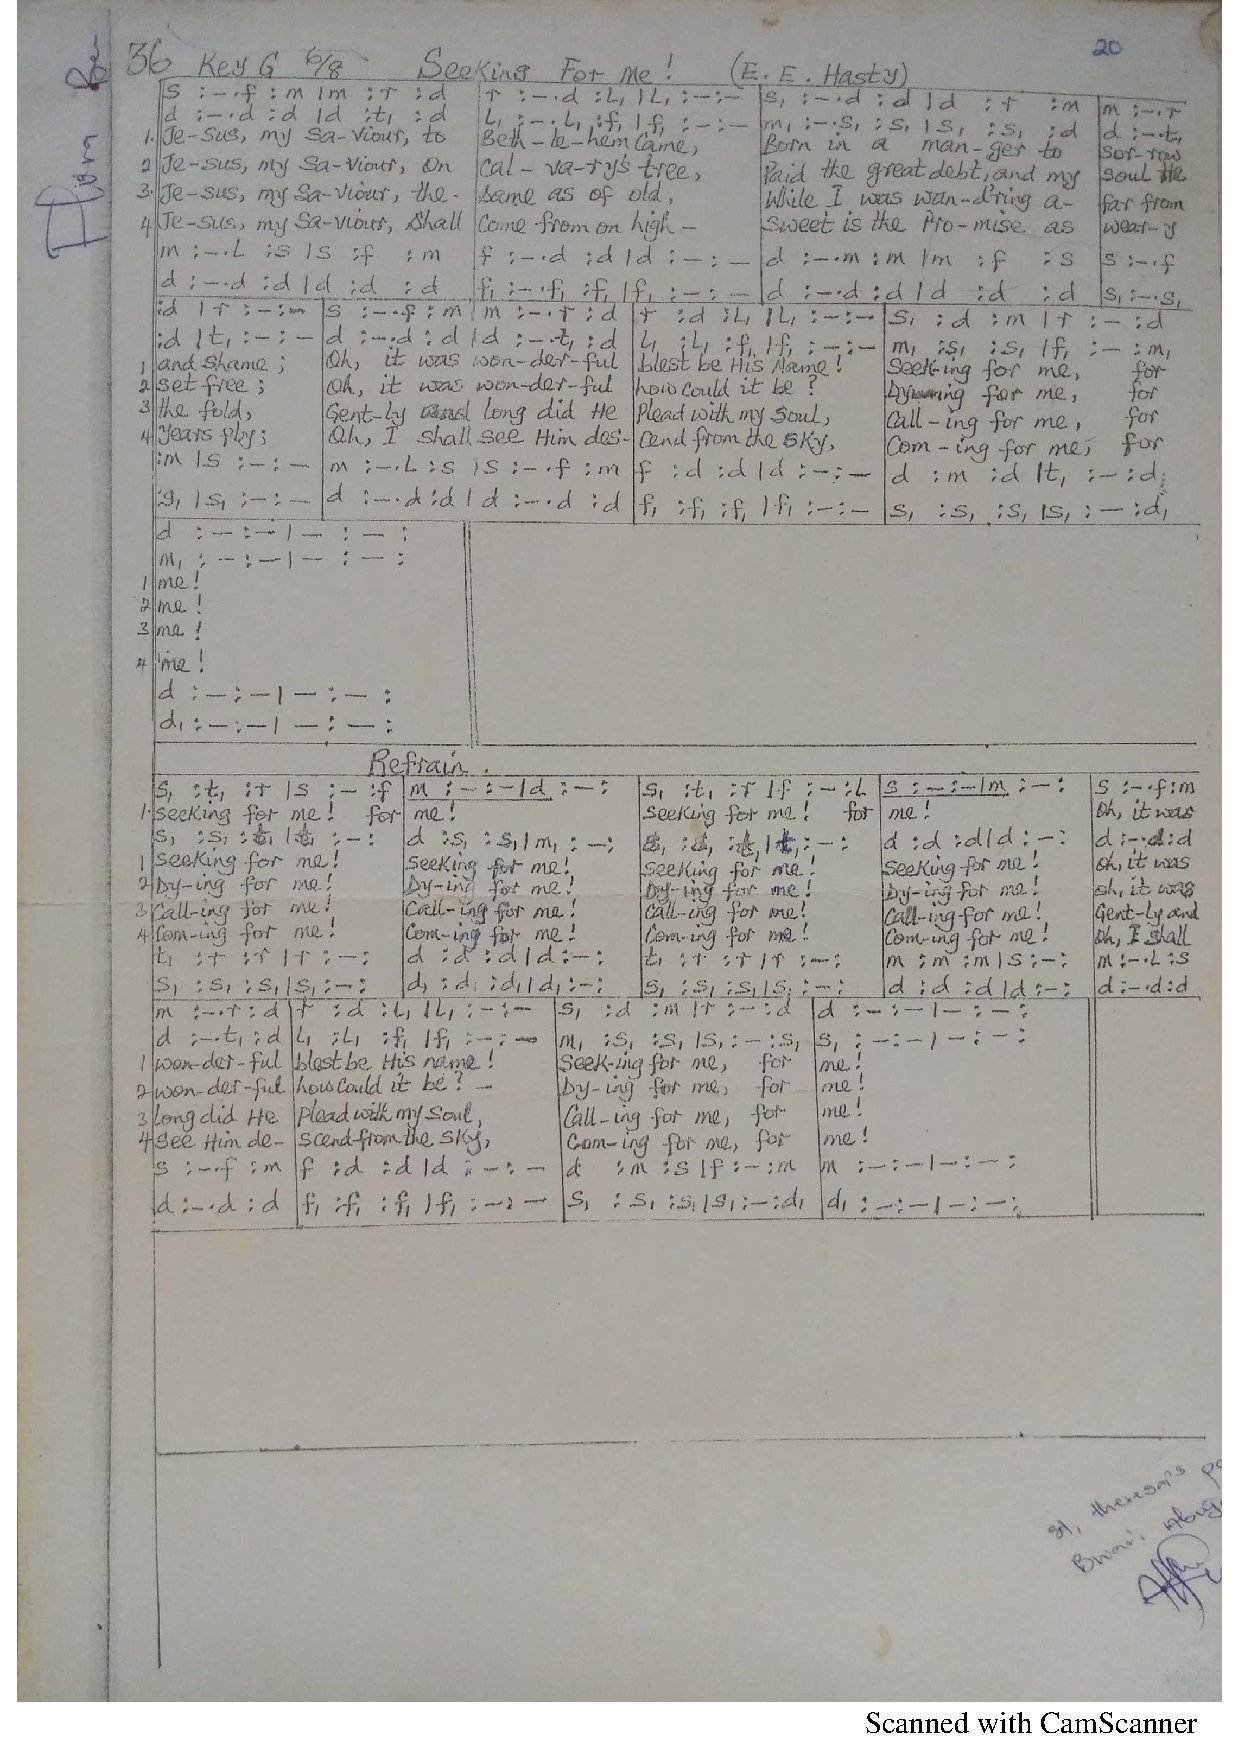 20
36 Key G 6/8 Seeking For Me! (E. E. Hasty)
s :-.f :m |m :r :d | r :-.d :L₁ |L₁ :-:- | s₁ :-.d :d |d :r :m | m :-.r
d :-.d :d |d :t₁ :d | L₁ :-.L₁ :f₁ |f₁ :-:- | m₁ :-.s₁ :s₁ |s₁ :s₁ :d | d :-.t₁
1. Je-sus, my Sa-viour, to Beth-le-hem Came, Born in a man-ger to Sor-row
2 Je-sus, my Sa-viour, on Cal-va-ry's tree, Paid the great debt, and my soul the
3. Je-sus, my Sa-viour, the. Same as of old, While I was wan-d'ring a- far from
4. Je-sus, my Sa-viour, shall Come from on high- Sweet is the Pro-mise as wear-y
m :-.L :s |s :f :m | f :-.d :d |d :-:- | d :-.m :m |m :f :s | s :-.f
d :-.d :d |d :d :d | f₁ :-.f₁ :f₁ |f₁ :-:- | d :-.d :d |d :d :d | s₁ :-.s₁
:d |r :-:- | s :-.f :m |m :-.r :d | r :d :L₁ |L₁ :-:- | s₁ :d :m |r :- :d
:d |t₁ :-:- | d :-.d :d |d :-.t₁ :d | L₁ :L₁ :f₁ |f₁ :-:- | m₁ :s₁ :s₁ |f₁ :- :m₁
1 and shame; Oh, it was won-der-ful blest be His Name! Seek-ing for me, for
2 set free; Oh, it was won-der-ful how could it be? Dying for me, for
3 the fold, Gent-ly and long did He Plead with my Soul, Call-ing for me, for
4 Years ply; Oh, I shall see Him des- cend from the sky, Com-ing for me, for
:m |s :-:- | m :-.L :s |s :-.f :m | f :d :d |d :-:- | d :m :d |t₁ :- :d
:s₁ |s₁ :-:- | d :-.d :d |d :-.d :d | f₁ :f₁ :f₁ |f₁ :-:- | s₁ :s₁ :s₁ |s₁ :- :d₁
d :-:-|- :- :
m₁ :-:-|- :- :
1 me!
2 me!
3 me!
4 me!
d :-:-|- :- :
d₁ :-:-|- :- :
Refrain.
s₁ :t₁ :r |s :- :f | m :-:-|d :-: | s₁ :t₁ :r |f :- :L | s :-:-|m :-: | s :-.f :m
1. Seeking for me! for me! Seeking for me! for me! Oh, it was
s₁ :s₁ :t₁ |t₁ :-: | d :s₁ :s₁ |m₁ :-: | :t₁ |t₁ :-: | d :d :d |d :-: | d :-.d :d
1 Seeking for me! Seeking for me! Seeking for me! Seeking for me! Oh, it was
2 Dy-ing for me! Dy-ing for me! Dy-ing for me! Dy-ing for me! oh, it was
3 Call-ing for me! Call-ing for me! Call-ing for me! Call-ing for me! Gent-ly and
4 Com-ing for me! Com-ing for me! Com-ing for me! Com-ing for me! Oh, I shall
t₁ :r :r |r :-: | d :d :d |d :-: | t₁ :r :r |r :-: | m :m :m |s :-: | m :-.L :s
s₁ :s₁ :s₁ |s₁ :-: | d₁ :d₁ :d₁ |d₁ :-: | s₁ :s₁ :s₁ |s₁ :-: | d :d :d |d :-: | d :-.d :d
m :-.r :d | r :d :L₁ |L₁ :-:- | s₁ :d :m |r :- :d | d :-:-|-:-:
d :-.t₁ :d | L₁ :L₁ :f₁ |f₁ :-:- | m₁ :s₁ :s₁ |s₁ :- :s₁ | s₁ :-:-|-:-:
1 won-der-ful blest be His name! Seek-ing for me, for me!
2 won-der-ful how could it be? - Dy-ing for me, for me!
3 Long did He Plead with my Soul, Call-ing for me, for me!
4 See Him de- scend from the sky, Com-ing for me, for me!
s :-.f :m | f :d :d |d :-:- | d :m :s |f :- :m | m :-:-|-:-:
d :-.d :d | f₁ :f₁ :f₁ |f₁ :-:- | s₁ :s₁ :s₁ |s₁ :- :d₁ | d₁ :-:-|-:-:
St. Theresa's
Scanned with CamScanner